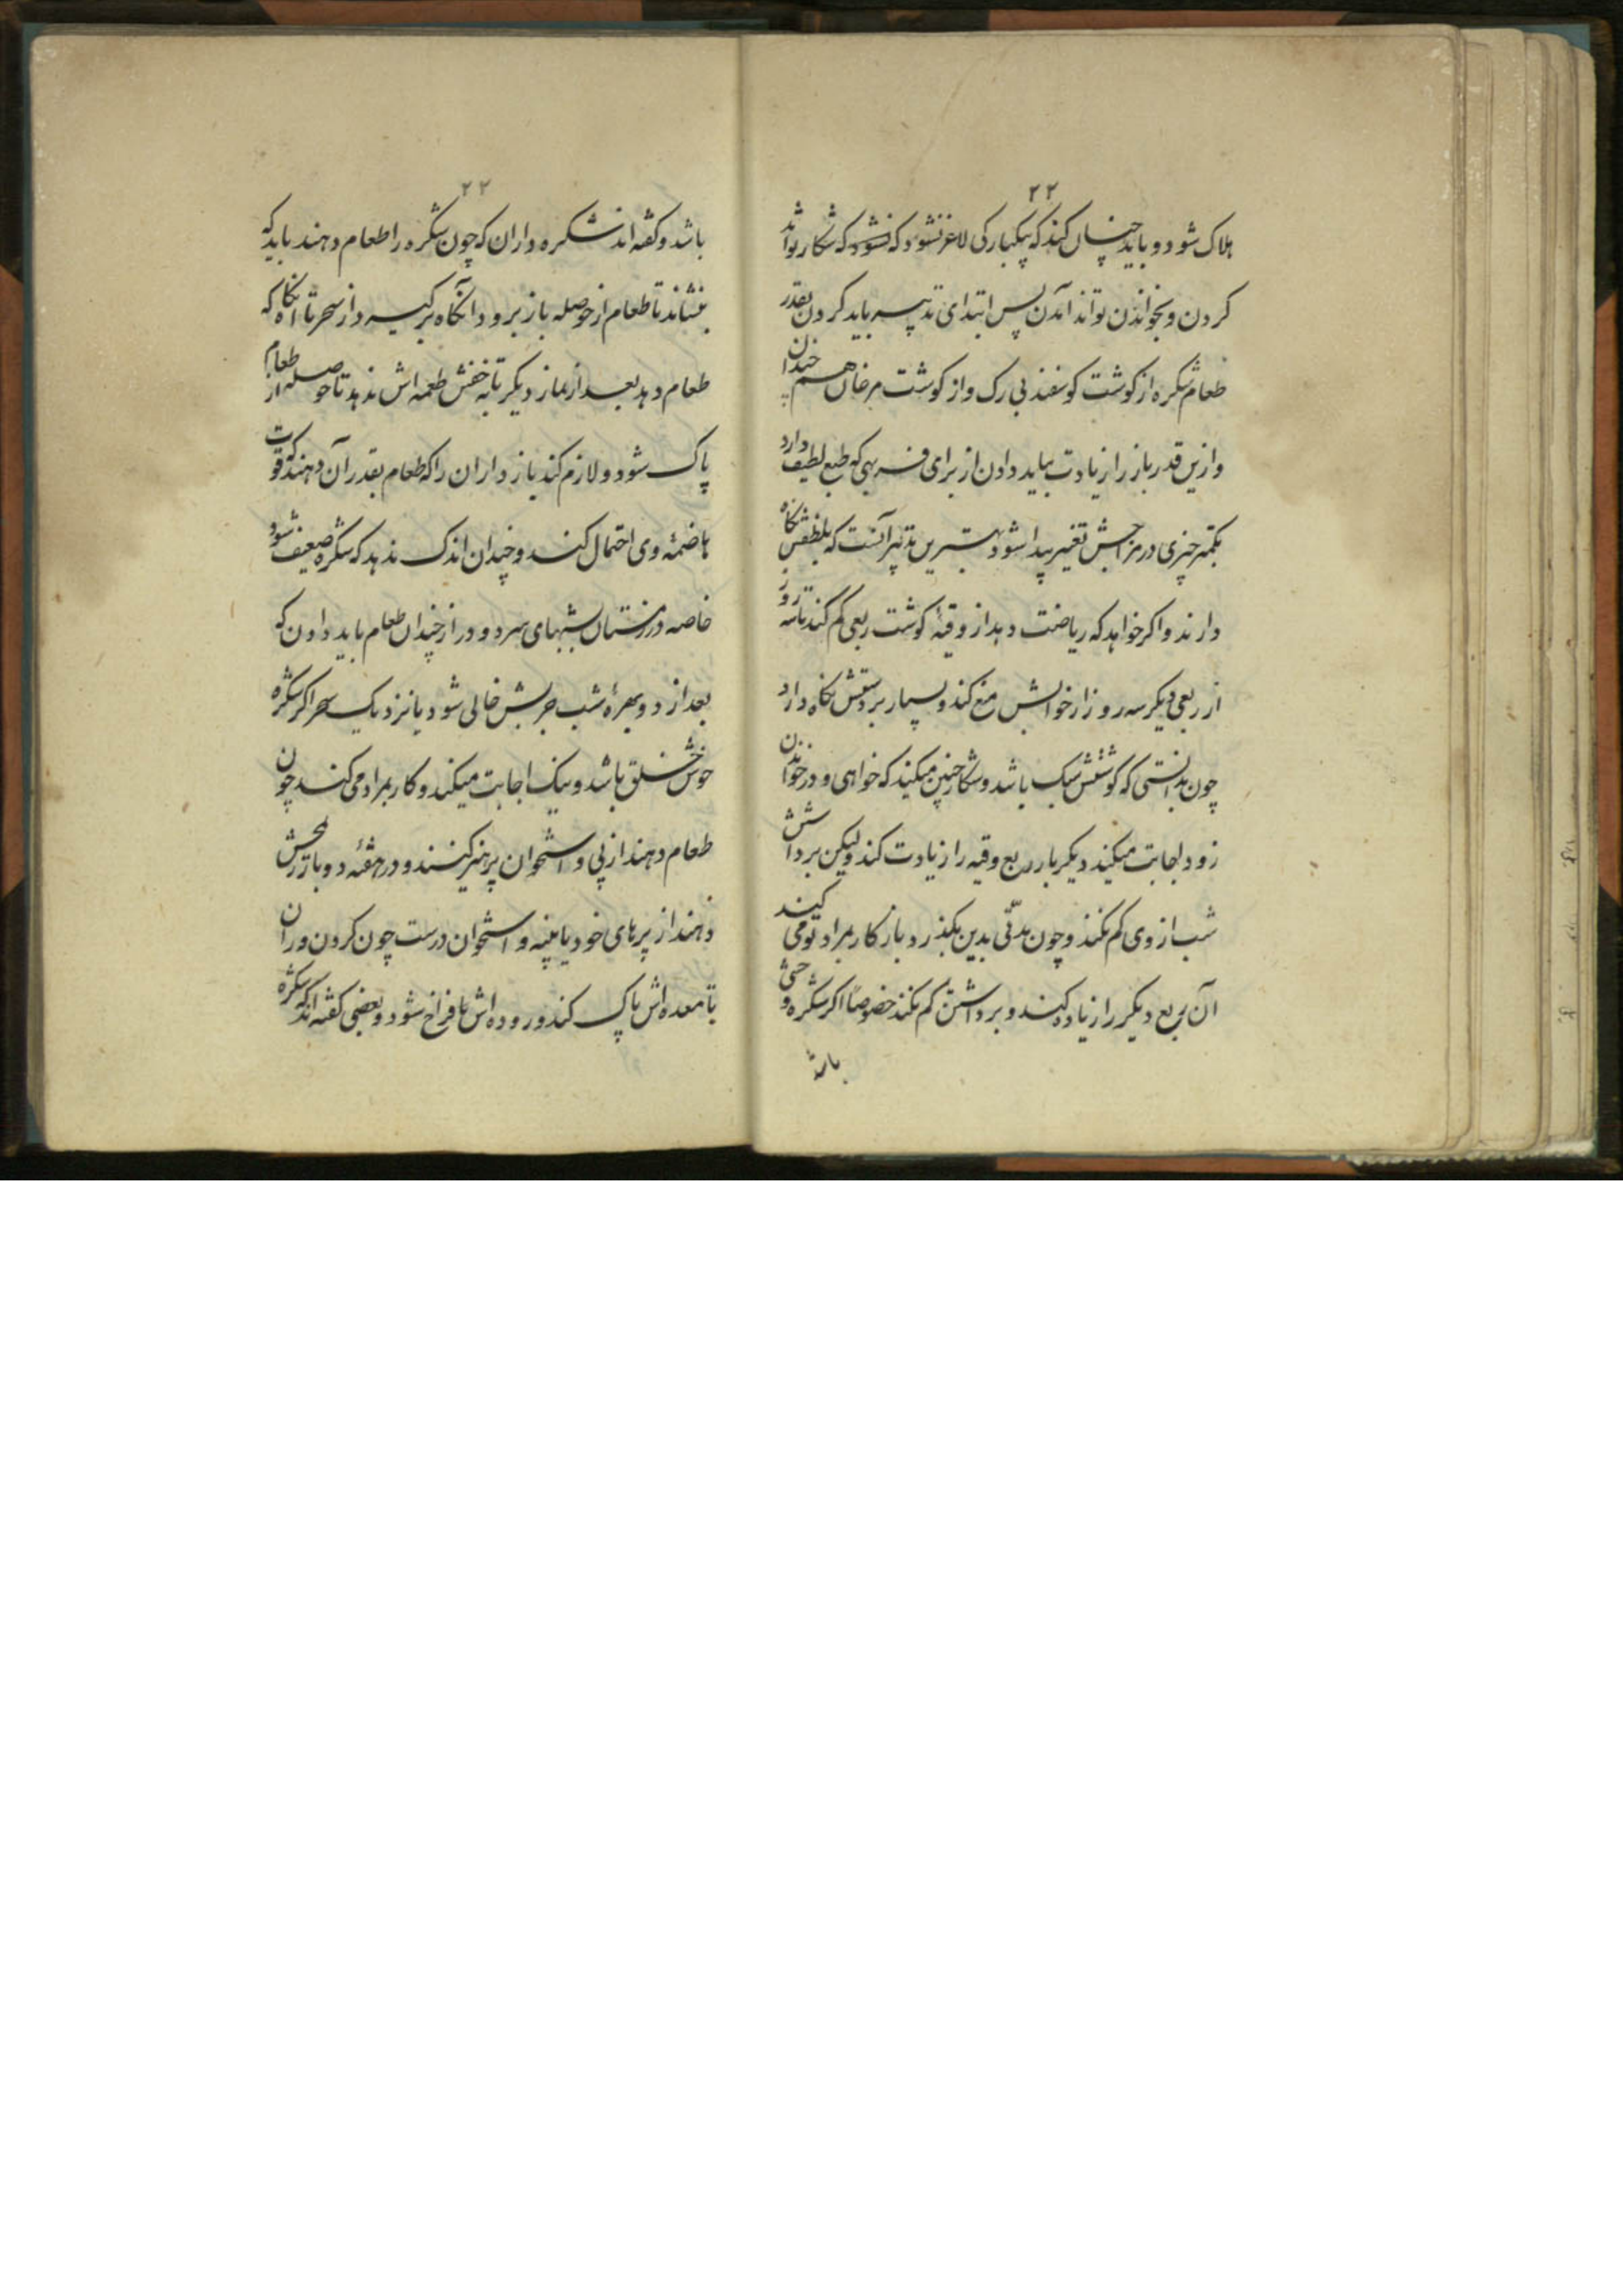 ۲۲
هلاک شود و باید چنان کند که بیکبارکی لاغر نشود که نشود که شکار تواند
کردن و بخواندن تواند آمدن پس ابتدای تدبیر باید کردن بقدر
طعام شکره از کوشت کوسفند بی رک و از کوشت مرغان هم چندان
و ازین قدر باز را زیادت بباید دادن از برای فربهی که طبع لطیف دارد
بکمتر چیزی در مزاجش تغییر پیدا شود بهترین تدبیر آنست که بلطفش نکاه
دارند و اکر خواهد که ریاضت دهد از وقیهٔ کوشت ربعی کم کند تا سه روز
از ربعی دیکر سه روز از خوابش منع کند و بسیار بر دستش نکاه دارد
چون بدانستی که کوشتش سبک باشد و شکار چنین میکند که خواهی و در خواندن
زود اجابت میکند دیکر بار ربع وقیه را زیادت کند ولیکن برداشتش
شب از وی کم نکند و چون مدّتی بدین بکذرد باز کار بمراد تو می کند
آن ربع دیکر را زیاده کنند و برداشتن کم نکند خصوصاً اکر شکره وحشی
باشد
۲۳
باشد و کفته اند شکره داران که چون شکره را طعام دهند باید که
بنشاند تا طعام از حوصله باز برود آنکاه برکیرد از سحر تا آنکاه که
طعام دهد بعد از نماز دیکر تا به خفتن طعمه اش ندهد تا حوصله از طعام
پاک شود و لازم کند بازداران را که طعام بقدر آن دهند که قوّت
هاضمهٔ وی احتمال کند و چندان اندک ندهد که شکره ضعیف شود
خاصه در زمستان شبهای سرد و دراز چندان طعام باید دادن که
بعد از دو بهرهٔ شب چربش خالی شود یا نزدیک سحر اکر شکره
خوش خلق باشد و نیک اجابت میکند و کار بمراد می کند چون
طعام دهند از پی و استخوان پرهیز کنند و در هفته دو بار
دهند از پرهای خود یا پنبه و استخوان درست چون کردن و ران
تا معده اش پاک کند و روده اش فراخ شود و بعضی کفته اند که شکره